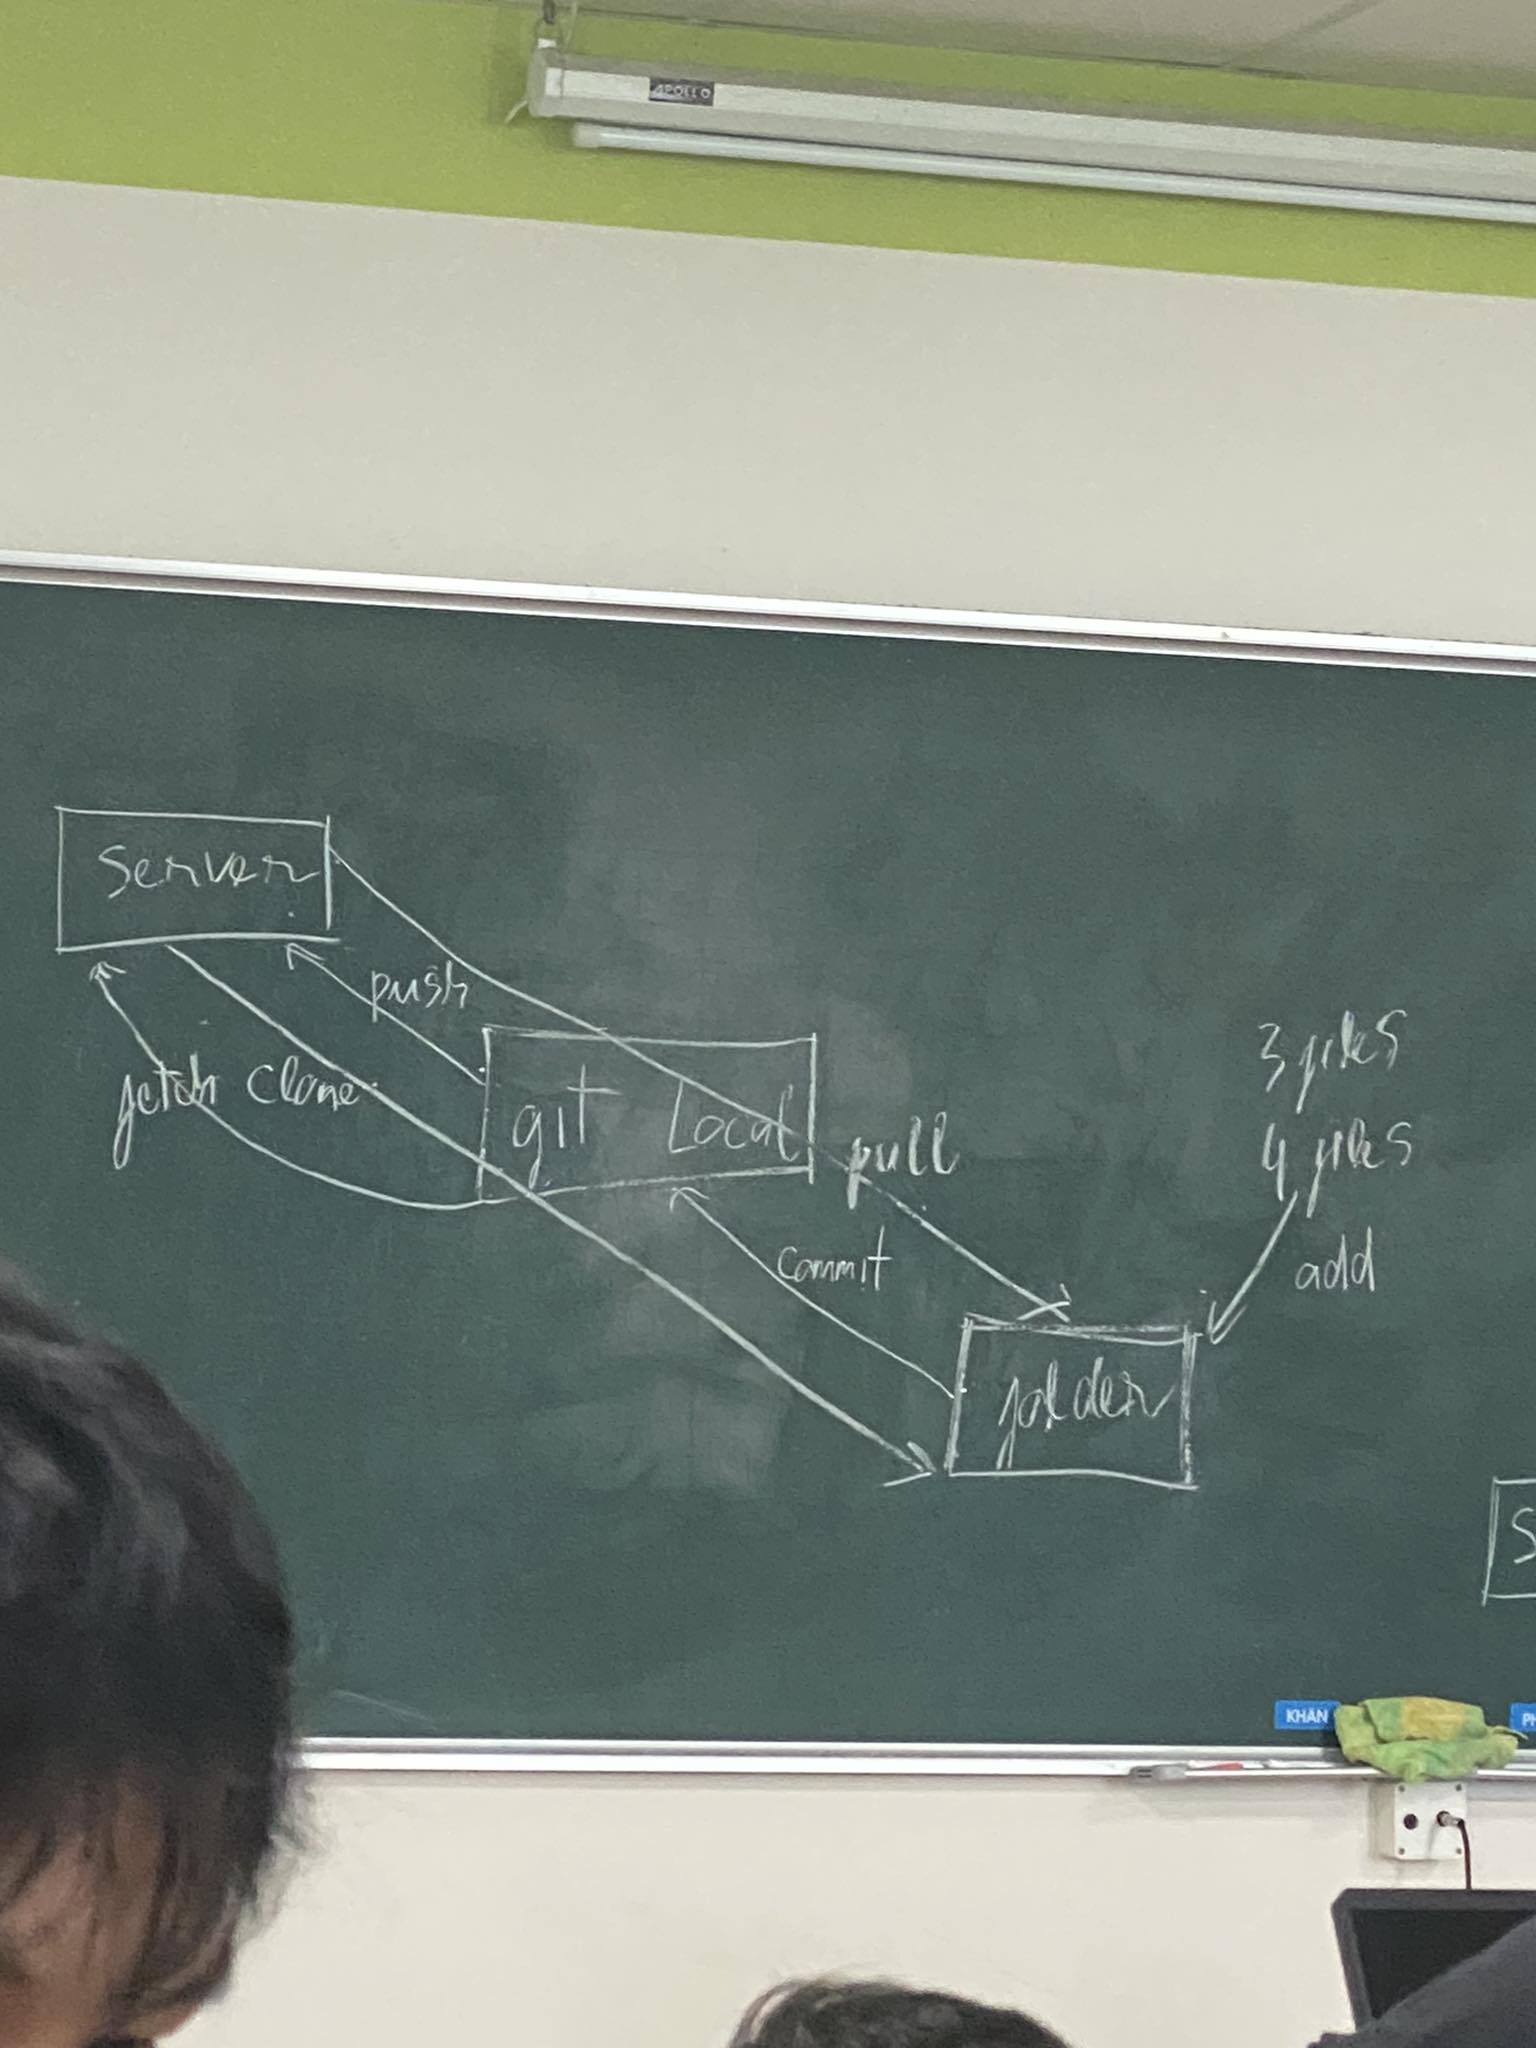 APOLLO
server
push
fetch clone
git Local
pull
3 files
4 files
commit
add
folder
S
KHĂN
PH